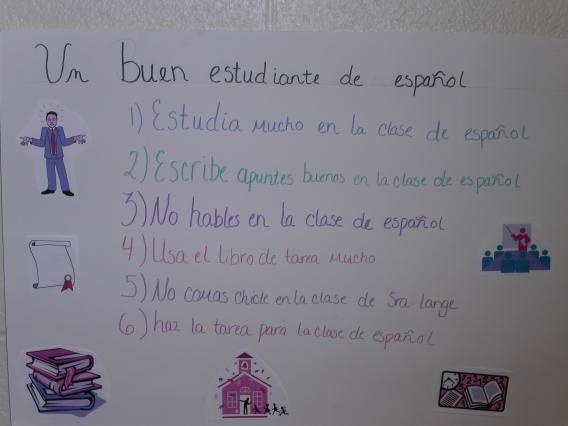 Un buen estudiante de español
1) Estudia mucho en la clase de español
2) Escribe apuntes buenos en la clase de español
3) No hables en la clase de español
4) Usa el libro de tarea mucho
5) No comas chicle en la clase de Sra Lange
6) haz la tarea para la clase de español